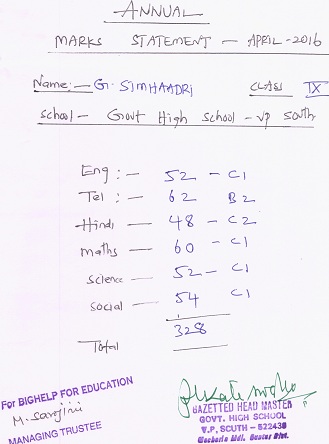 ANNUAL
MARKS STATEMENT - APRIL-2016
Name:- G. SIMHAADRI CLASS IX
School- Govt High School - vp South
Eng :- 52 - C1
Tel :- 62 B2
Hindi - 48 - C2
maths - 60 - C1
science - 52 - C1
social - 54 C1
Total 328
For BIGHELP FOR EDUCATION
M. Sarojini
MANAGING TRUSTEE
GAZETTED HEAD MASTER
GOVT. HIGH SCHOOL
V.P. SOUTH - 522438